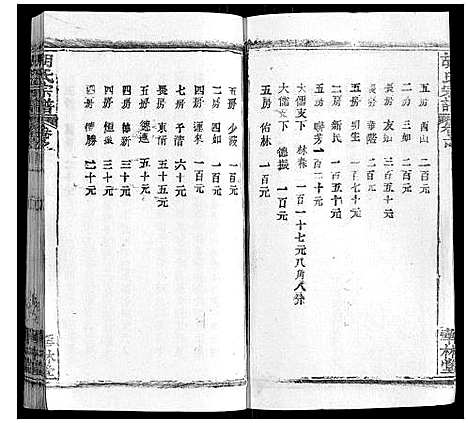 胡氏宗譜
五房 西山 二百元
二房 三如 二百元
長房 友如 三百五十元
長房 華 二百元
五房 明生 一百五十元
二房 新民 一百五十元
五房 聯芳 一百二十元
大儒支下 林森 一百一十七元八角八分
大儒支下 德振 一百元
五房 佑林 一百元
華林堂
五房 少 一百元
二房 四如 一百元
四房 運泉 一百元
七房 予清 六十元
長房 東 五十元
五房 德 五十元
四房 德新 三十元
四房 二十元
胡氏宗譜
華林堂